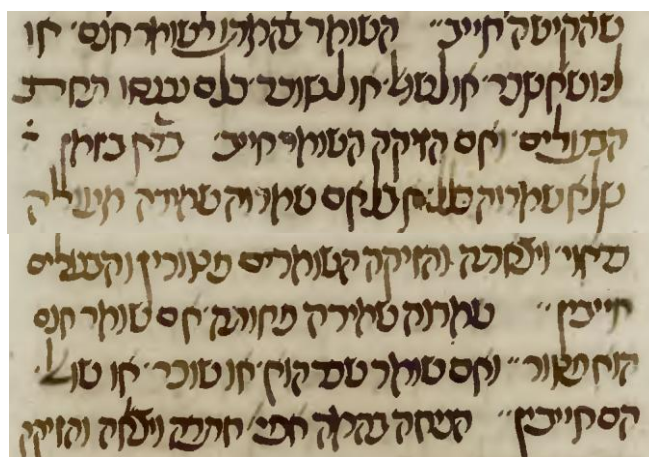 שהקישה חייב׳׳ השומר בהמתו לשומר חנם׳ או
לנושא שכר׳ או לשואל׳ או לשוכר׳ כלם נכנסו תחת
הבעלים׳ ואם הזיקה השומר חייב׳ בד׳א בזמן
שלא שמרוה כלל׳ אבל אם שמרוה שמירה מעולה
כראוי׳ ויצאתה והזיקה השומרים פטורין והבעלים
חייבין׳׳ שמרוה שמירה פחותה׳ אם שומר חנם
הוא פטור׳׳ ואם שומר שכר הוא׳ או שוכר׳ או שואל
הם חייבין׳׳ הניחה בחמה אפי׳ חתרה ויצאה והזיקה